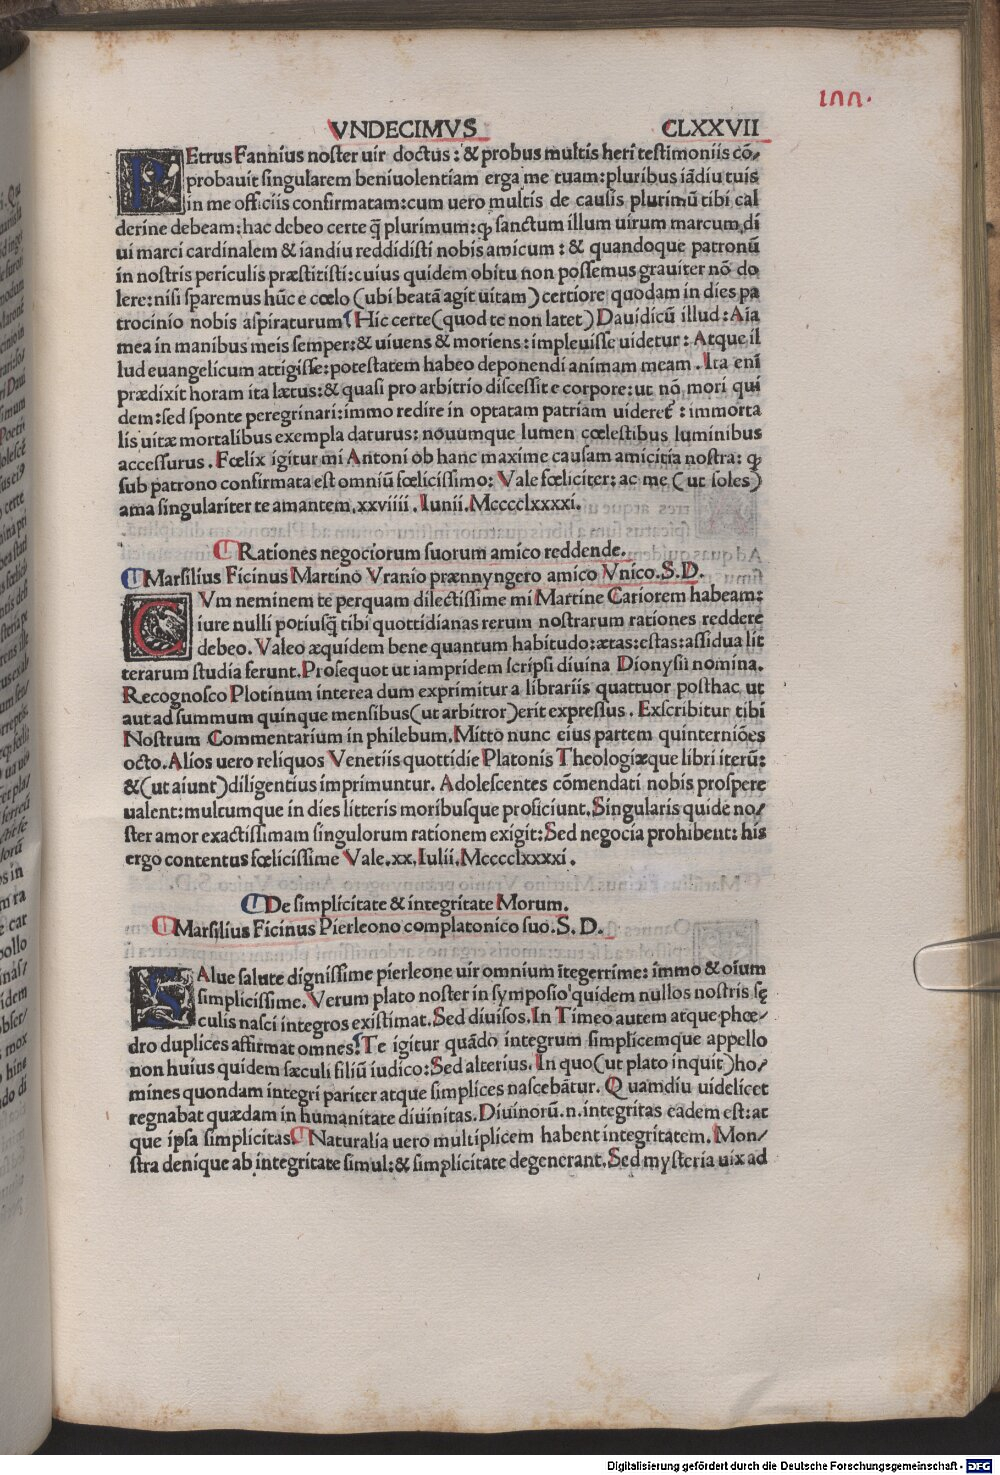 177.
VNDECIMVS CLXXVII
PEtrus Fannius noster uir doctus: & probus multis heri testimoniis cō/
probauit singularem beniuolentiam erga me tuam: pluribus iādiu tuis
in me officiis confirmatam: cum uero multis de causis plurimū tibi cal
derine debeam: hac debeo certe q̄ plurimum: ꝙ sanctum illum uirum marcum di
ui marci cardinalem & iandiu reddidisti nobis amicum: & quandoque patronū
in nostris periculis præstitisti: cuius quidem obitu non possemus grauiter nō do
lere: nisi sparemus hūc e cœlo (ubi beatā agit uitam) certiore quodam in dies pa
trocinio nobis aspiraturum ¶ Hic certe (quod te non latet) Dauidicū illud: Aīa
mea in manibus meis semper: & uiuens & moriens: impleuisse uidetur: Atque il
lud euangelicum attigisse: potestatem habeo deponendi animam meam. Ita enī
prædixit horam ita lætus: & quasi pro arbitrio discessit e corpore: ut nō mori qui
dem: sed sponte peregrinari: immo redire in optatam patriam uideret᷑: immorta
lis uitæ mortalibus exempla daturus: nouumque lumen cœlestibus luminibus
accessurus. Fœlix igitur mi Antoni ob hanc maxime causam amicitia nostra: ꝙ
sub patrono confirmata est omniū fœlicissimo: Vale fœliciter: ac me (ut soles)
ama singulariter te amantem. xxviiii. Iunii. Mcccclxxxxi.
¶ Rationes negociorum suorum amico reddende.
¶ Marsilius Ficinus Martino Vranio prænnyngero amico Vnico. S. D.
CVm neminem te perquam dilectissime mi Martine Cariorem habeam:
iure nulli potiusq̄ tibi quottidianas rerum nostrarum rationes reddere
debeo. Valeo æquidem bene quantum habitudo: ætas: estas: assidua lit
terarum studia ferunt. Prosequor ut iampridem scripsi diuina Dionysii nomina.
Recognosco Plotinum interea dum exprimitur a librariis quattuor posthac ut
aut ad summum quinque mensibus (ut arbitror) erit expressus. Exscribitur tibi
Nostrum Commentarium in philebum. Mitto nunc eius partem quinterniōes
octo. Alios uero reliquos Venetiis quottidie Platonis Theologiæque libri iterū:
& (ut aiunt) diligentius imprimuntur. Adolescentes cōmendati nobis prospere
ualent: multumque in dies litteris moribusque proficiunt. Singularis quidē no/
ster amor exactissimam singulorum rationem exigit: Sed negocia prohibent: his
ergo contentus fœlicissime Vale. xx. Iulii. Mcccclxxxxi.
¶ De simplicitate & integritate Morum.
¶ Marsilius Ficinus Pierleono complatonico suo. S. D.
SAlue salute dignissime pierleone uir omnium ītegerrime: īmmo & oīum
simplicissime. Verum plato noster in symposio quidem nullos nostris sę
culis nasci integros existimat. Sed diuisos. In Timeo autem atque phœ/
dro duplices affirmat omnes. ¶ Te igitur quādo integrum simplicemque appello
non huius quidem sæculi filiū iudico: Sed alterius. In quo (ut plato inquit) ho/
mines quondam integri pariter atque simplices nascebātur. Quamdiu uidelicet
regnabat quædam in humanitate diuinitas. Diuinorū. n. integritas eadem est: at
que ipsa simplicitas. ¶ Naturalia uero multiplicem habent integritatem. Mon/
stra denique ab integritate simul: & simplicitate degenerant. Sed mysteria uix ad
Digitalisierung gefördert durch die Deutsche Forschungsgemeinschaft - DFG